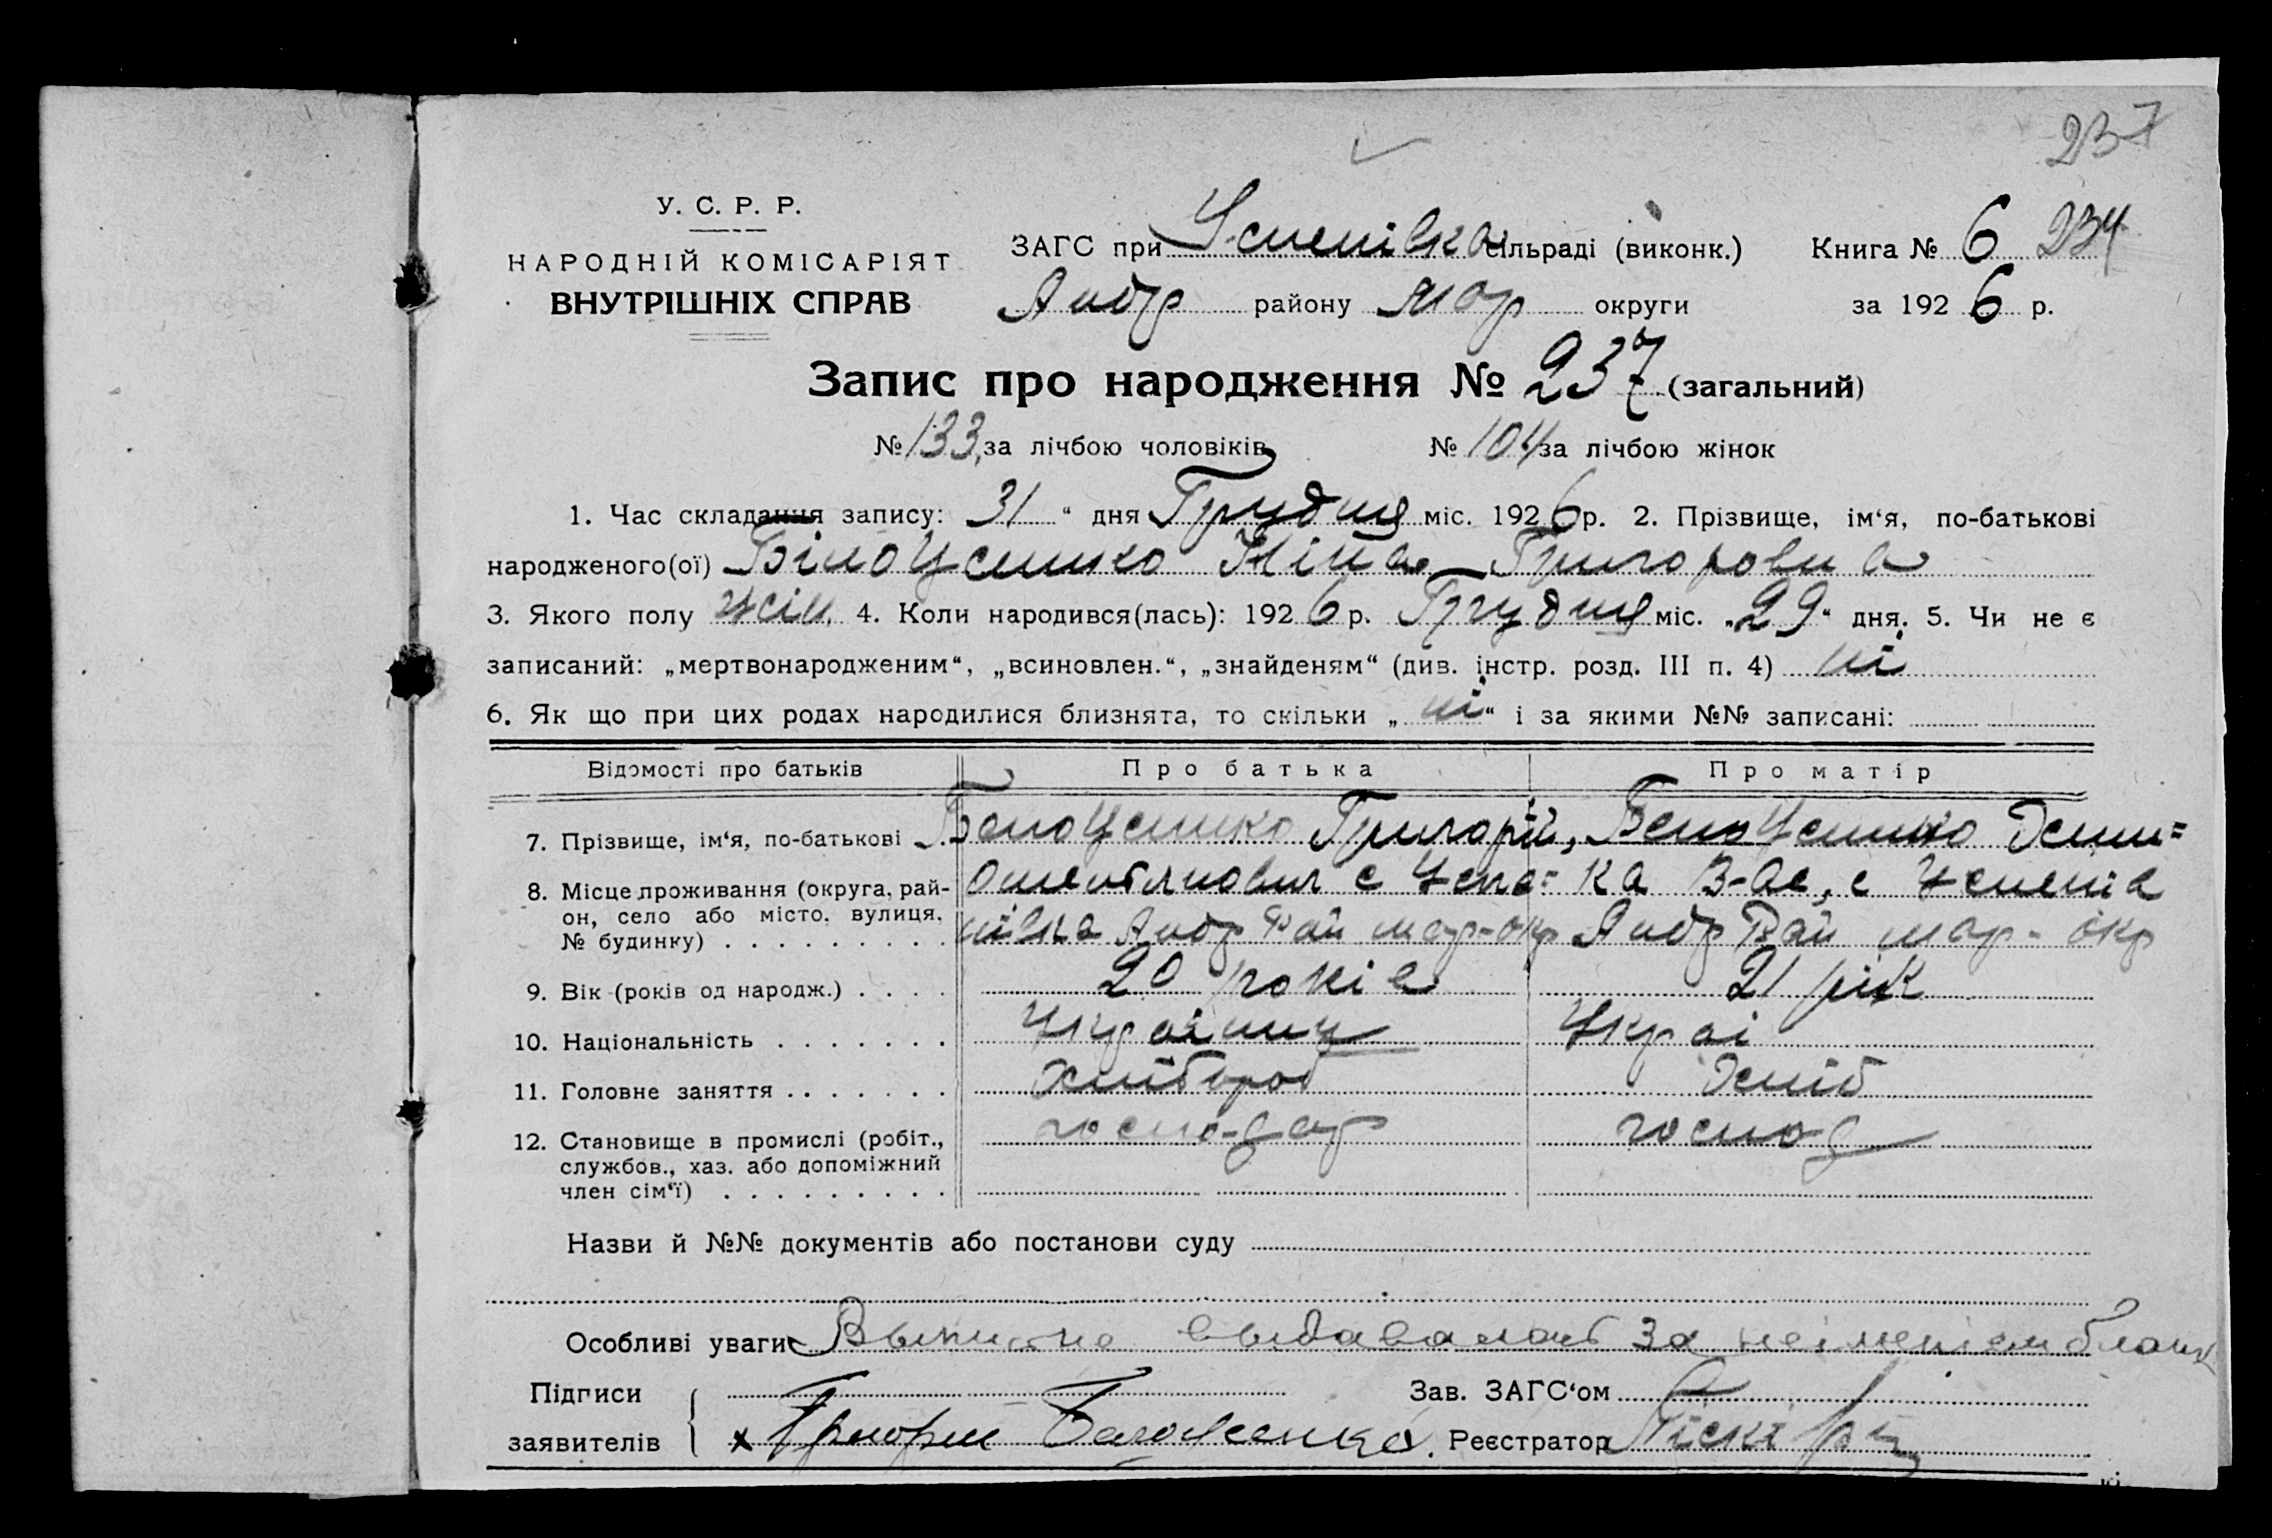 237
У. С. Р. Р.
НАРОДНІЙ КОМІСАРІЯТ
ВНУТРІШНІХ СПРАВ
ЗАГС при Успенівка сільраді (виконк.) Книга № 6 234
Андр району Мар округи за 1926 р.
Запис про народження № 237 (загальний)
№ 133 за лічбою чоловіків № 104 за лічбою жінок
1. Час складання запису: 31 “ дня Грудня міс. 1926 р. 2. Прізвище, ім‘я, по-батькові
народженого(ої) Ніна Григоровна
3. Якого полу жін. 4. Коли народився(лась): 1926 р. Грудня міс. „29“ дня. 5. Чи не є
записаний: „мертвонародженим“, „всиновлен.“, „знайденям“ (див. інстр. розд. III п. 4) ні
6. Як що при цих родах народилися близнята, то скільки „ні“ і за якими №№ записані:
Відомості про батьків Про батька Про матір
7. Прізвище, ім‘я, по-батькові Григорій,
8. Місце проживання (округа, рай-
он, село або місто, вулиця,
№ будинку) Андр Рай мар-окр Андр Рай мар- окр
9. Вік (років од народж.) 20 років 21 рік
10. Національність Украі
11. Головне заняття Хлібороб
12. Становище в промислі (робіт., господар господ
службов., хаз. або допоміжний
член сім‘ї)
Назви й №№ документів або постанови суду
Особливі уваги за неімением бланк
Підписи Зав. ЗАГС‘ом
заявителів х Григорий Реєстратор